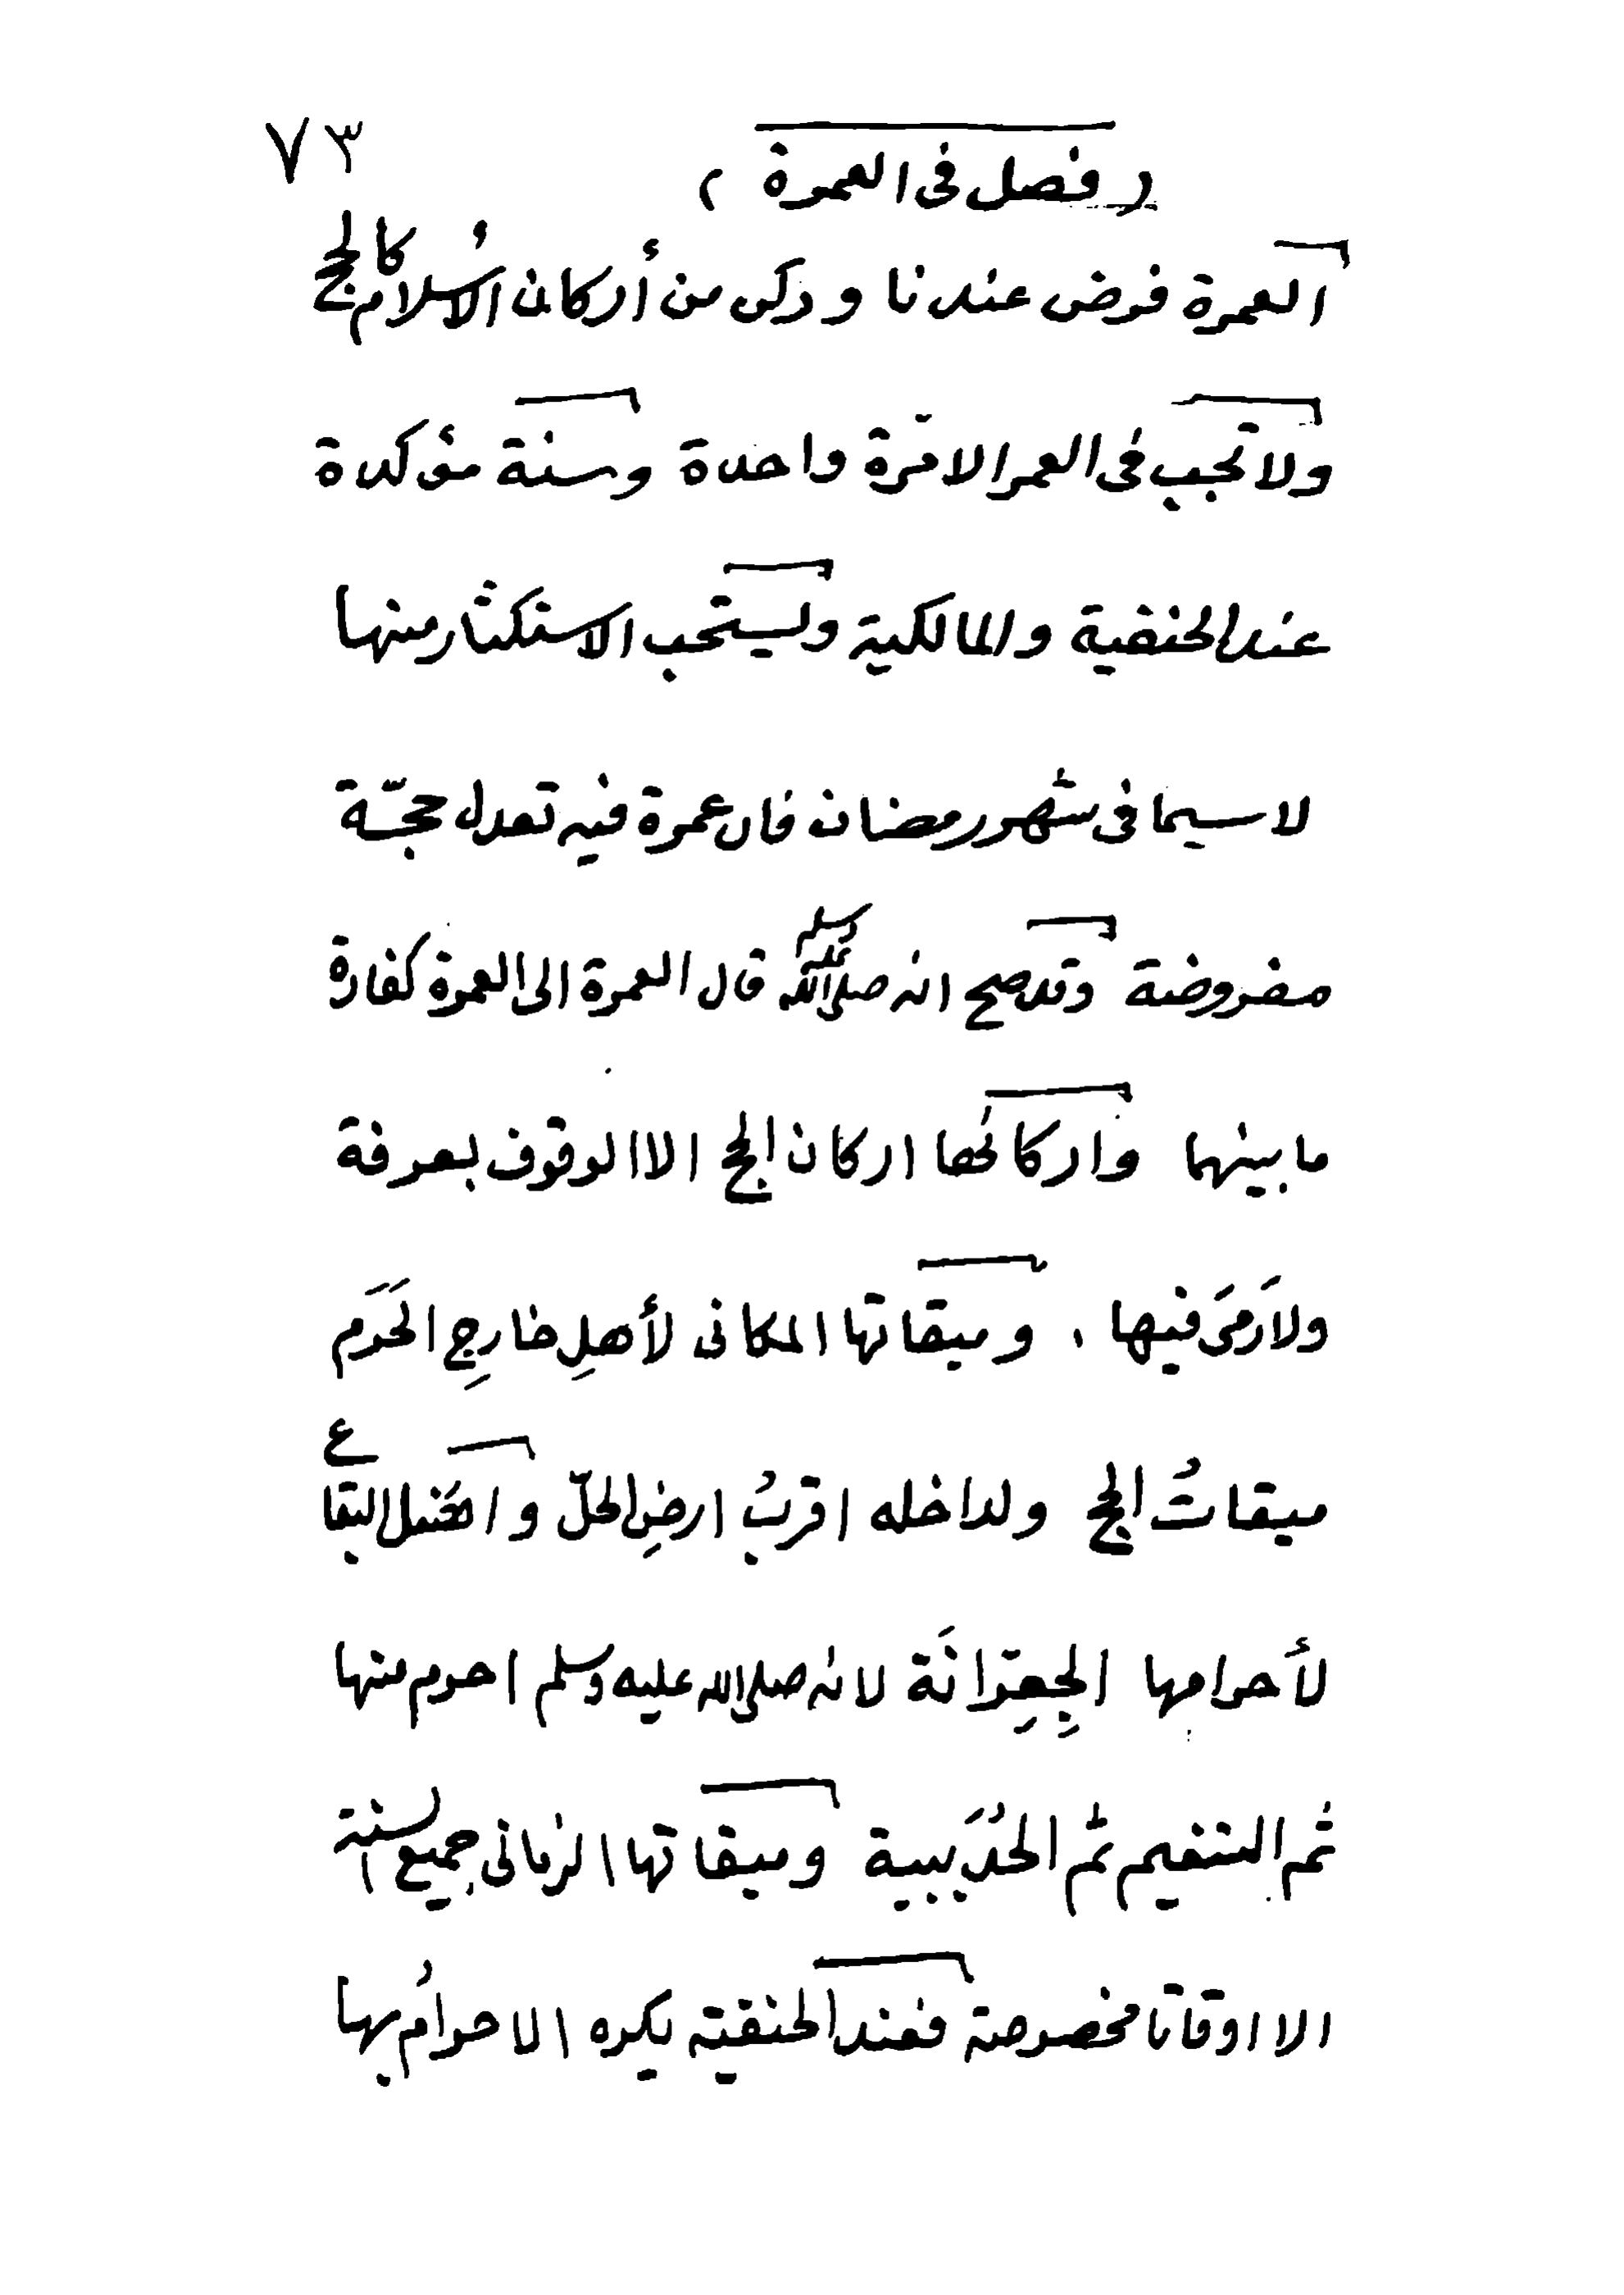 ٧٣
( فصل فى العمرة )
العمرة فرض عندنا وركن من أركان الاسلام كالحج
ولا تجب فى العمر الا مرّة واحدة وسنة مؤكدة
عند الحنفية والمالكية ويستحب الاستكثار منها
لا سيما فى شهر رمضان فان عمرة فيه تعدل حجّة
مفروضة وقد صح انه صلى الله عليه وسلم قال العمرة الى العمرة كفارة
ما بينهما واركانها اركان الحج الا الوقوف بعرفة
ولا رَمىَ فيها ، وميقاتها المكانى لأهلِ خارجِ الحَرَم
ميقاتُ الحج ولداخله اقربُ ارضِ الحلّ وافضل البقاع
لأحرامها الجِعِرّانَة لانه صلى الله عليه وسلم احرم منها
ثم التنعيم ثم الحُدَيبية وميقاتها الزمانى جميع السنة
الا اوقاتا مخصوصة فعند الحنفية يكره الاحرامُ بها